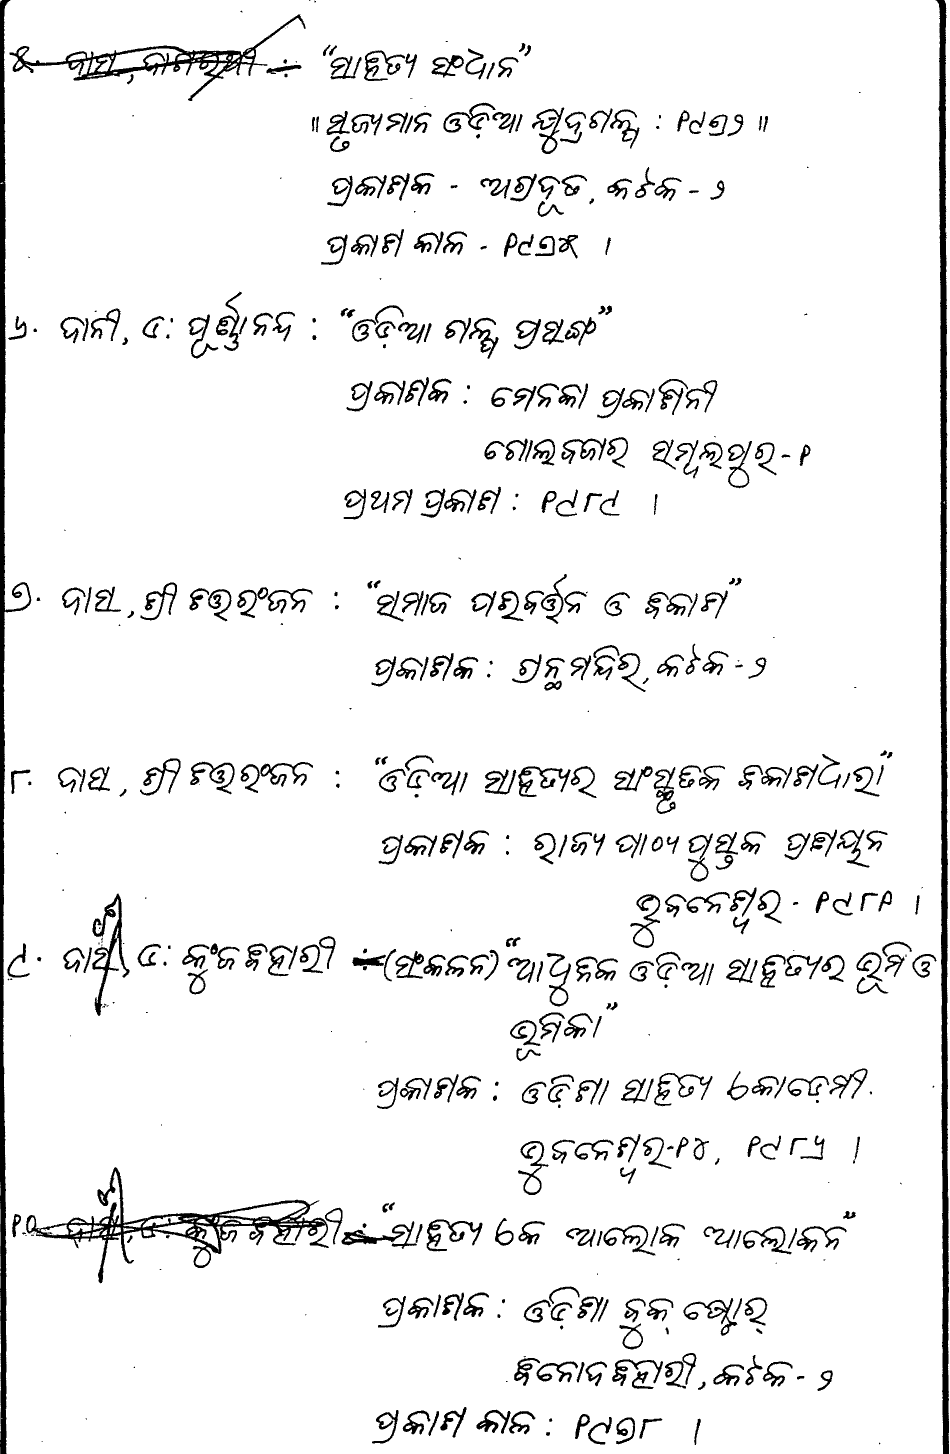 ୫. ଦାସ, ଦାଶରଥୀ : "ସାହିତ୍ୟ ସଂଧାନ"
॥ ସୃଜ୍ୟମାନ ଓଡ଼ିଆ କ୍ଷୁଦ୍ରଗଳ୍ପ : ୧୯୭୨ ॥
ପ୍ରକାଶକ - ଅଗ୍ରଦୂତ, କଟକ - ୨
ପ୍ରକାଶ କାଳ - ୧୯୭୫ ।
୬. ଦାନୀ, ଡ: ପୂର୍ଣ୍ଣାନନ୍ଦ : "ଓଡ଼ିଆ ଗଳ୍ପ ପ୍ରସଙ୍ଗ"
ପ୍ରକାଶକ : ମେନକା ପ୍ରକାଶିନୀ
ଗୋଲବଜାର ସମ୍ବଲପୁର - ୧
ପ୍ରଥମ ପ୍ରକାଶ : ୧୯୮୯ ।
୭. ଦାସ, ଶ୍ରୀ ଚିତ୍ତରଂଜନ : "ସମାଜ ପରିବର୍ତ୍ତନ ଓ ବିକାଶ"
ପ୍ରକାଶକ : ଗ୍ରନ୍ଥମନ୍ଦିର, କଟକ - ୨
୮. ଦାସ, ଶ୍ରୀ ଚିତ୍ତରଂଜନ : "ଓଡ଼ିଆ ସାହିତ୍ୟର ସାଂସ୍କୃତିକ ବିକାଶଧାରା"
ପ୍ରକାଶକ : ରାଜ୍ୟ ପାଠ୍ୟ ପୁସ୍ତକ ପ୍ରଣୟନ
ଭୁବନେଶ୍ୱର - ୧୯୮୧ ।
୯. ଦାସ, ଡ: କୁଂଜ ବିହାରୀ :- (ସଂକଳନ) "ଆଧୁନିକ ଓଡ଼ିଆ ସାହିତ୍ୟର ଭୂମି ଓ
ଭୂମିକା"
ପ୍ରକାଶକ : ଓଡ଼ିଶା ସାହିତ୍ୟ ଏକାଡ଼େମୀ.
ଭୁବନେଶ୍ୱର-୧୪, ୧୯୮୨ ।
୧୦. ଦାସ, ଡ: କୁଂଜ ବିହାରୀ : "ସାହିତ୍ୟ ଏକ ଆଲୋକ ଆଲୋକନ"
ପ୍ରକାଶକ : ଓଡ଼ିଶା ବୁକ୍ ଷ୍ଟୋର୍
ବିନୋଦ ବିହାରୀ, କଟକ - ୨
ପ୍ରକାଶ କାଳ : ୧୯୭୮ ।